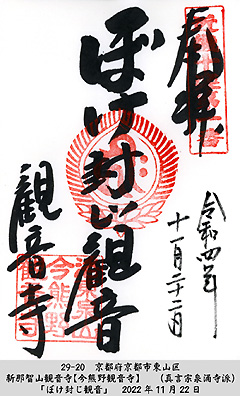 奉拝
ぼけ封じ観音
観音寺
令和四年
十一月二十二日
29-20 京都府京都市東山区
新那智山観音寺【今熊野観音寺】 (真言宗泉涌寺派)
「ぼけ封じ観音」 2022年11月22日